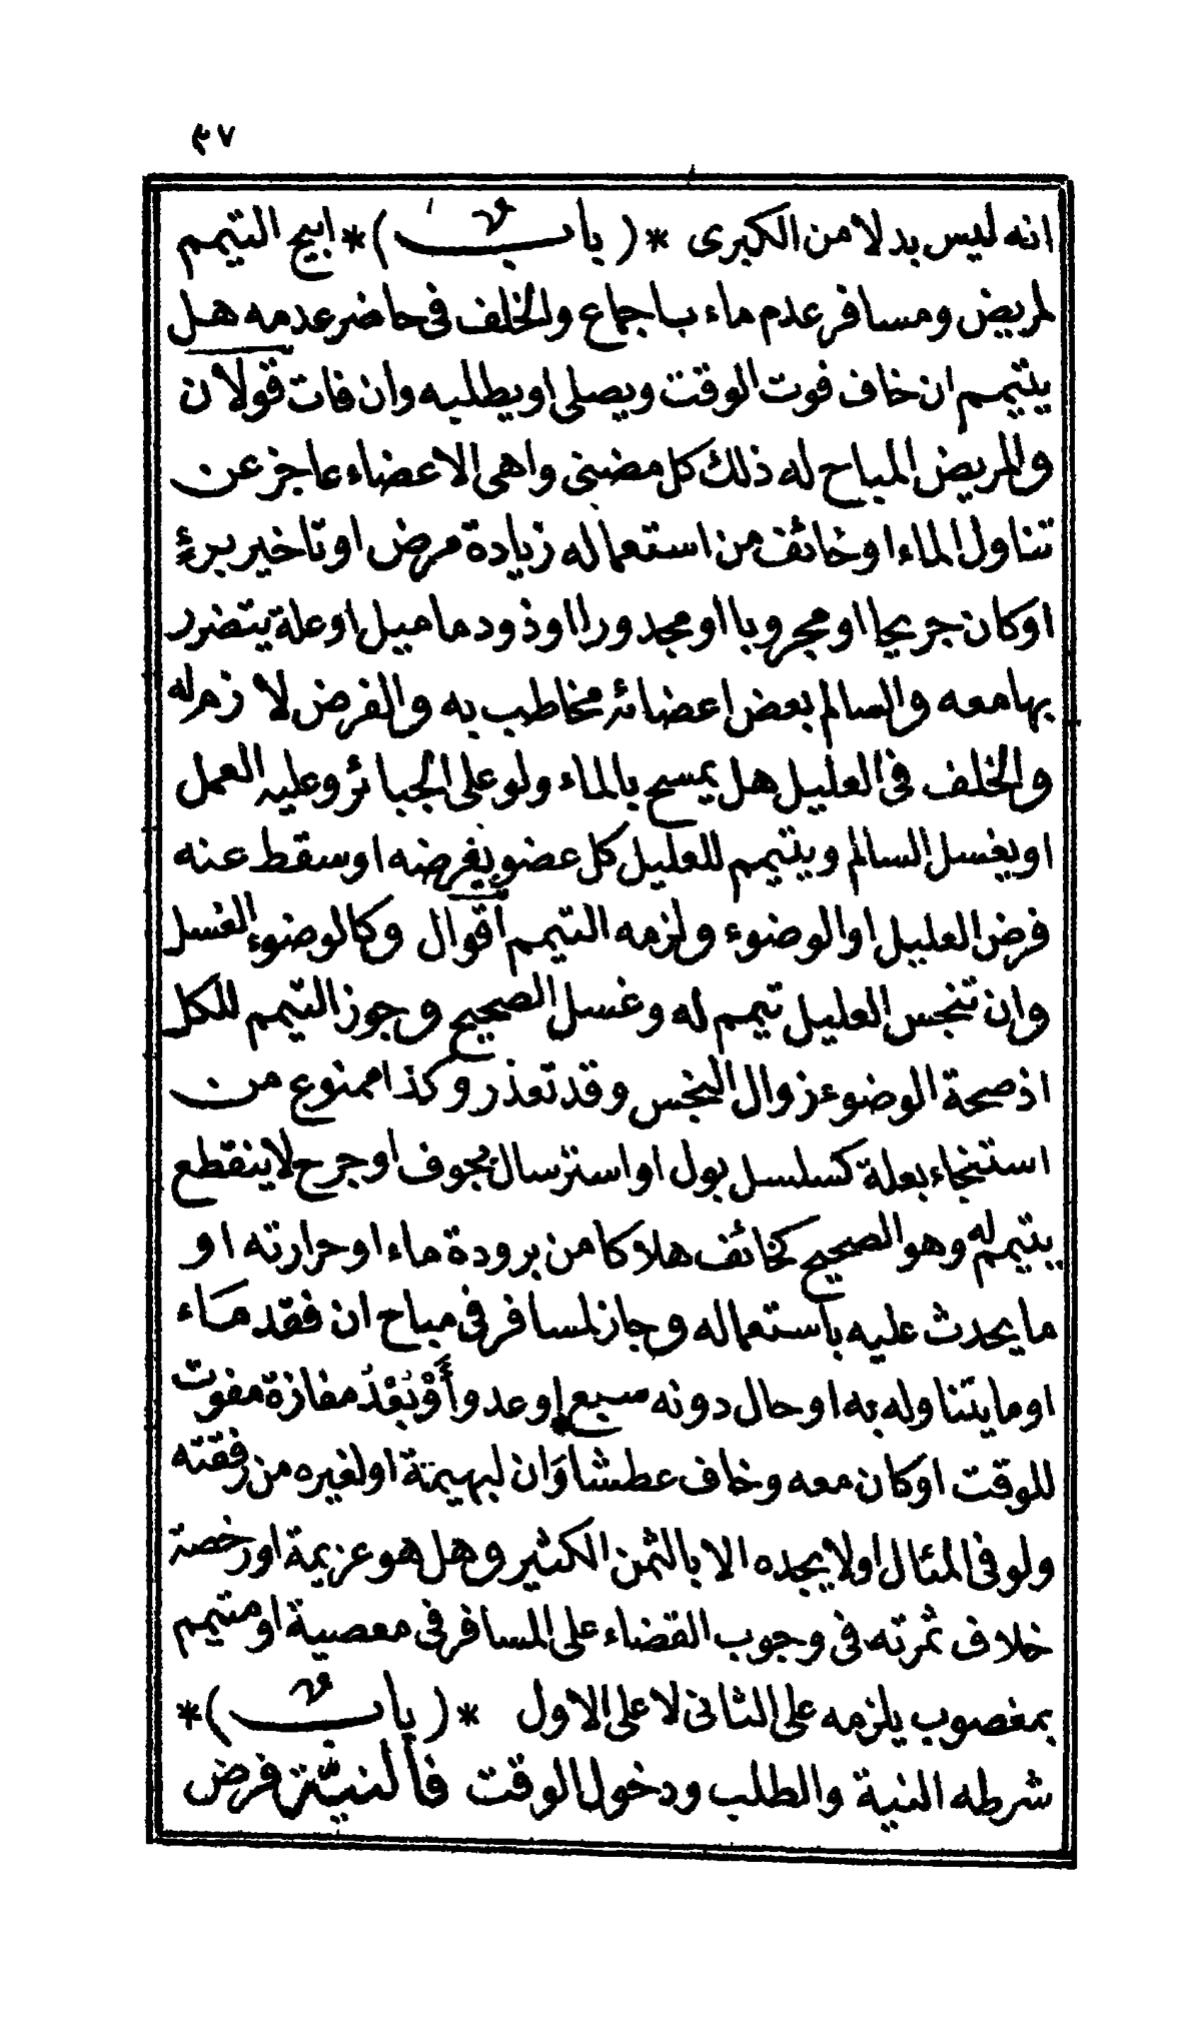 ٤٧
انه ليس بدلا من الكبرى * ( باب ) * ابيح التيمم
لمريض ومسافر عدم ماء باجماع والخلف فى حاضر عدمه هل
يتيمم ان خاف فوت الوقت ويصلى او يطلبه وان فات قولان
والمريض المباح له ذلك كل مضنى واهى الاعضاء عاجز عن
تناول الماء او خائف من استعماله زيادة مرض او تاخير برء
او كان جريحا او مجروبا او مجدورا او ذو دماميل او علة يتضرر
بها معه والسالم بعض اعضائه مخاطب به والفرض لا زم له
والخلف فى العليل هل يمسح بالماء ولو على الجبائر وعليه العمل
او يغسل السالم ويتيمم للعليل كل عضو بفرضه او سقط عنه
فرض العليل او الوضوء ولزمه التيمم اقوال وكالوضوء الغسل
وان تنجس العليل تيمم له وغسل الصحيح وجوز التيمم للكل
اذ صحة الوضوء زوال النجس وقد تعذر وكذا ممنوع من
استنجاء بعلة كسلسل بول او استرسال بجوف او جرح لا ينقطع
يتيمم له وهو الصحيح كخائف هلاكا من برودة ماء او حرارته او
ما يحدث عليه باستعماله وجاز لمسافر فى مباح ان فقد ماء
او ما يتناوله به او حال دونه سبع او عدو أَوْ بُعْدُ مفازة مفوت
للوقت او كان معه وخاف عطشا وَان لبهيمة او لغيره من رفقته
ولو فى المئال او لا يجده الا بالثمن الكثير وهل هو عزيمة او رخصة
خلاف ثمرته فى وجوب القضاء على المسافر فى معصية او متيمم
بمغصوب يلزمه على الثانى لا على الاول * ( باب ) *
شرطه النية والطلب ودخول الوقت فالنيّة فرض